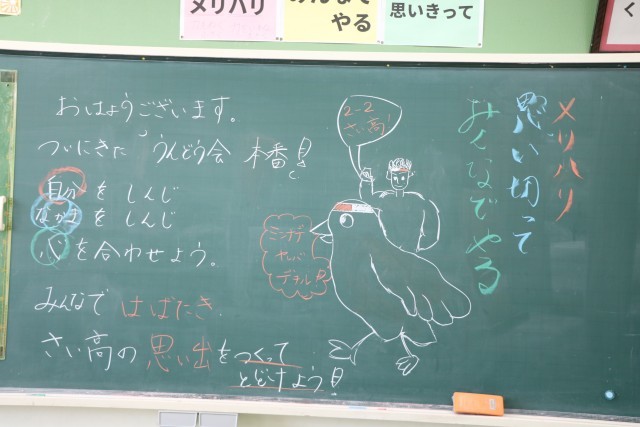 メリハリ
やる
思いきって
く
おはようございます。
ついにきた うんどう会 本番!!
自分をしんじ
なかまをしんじ
心を合わせよう。
みんなで はばたき
さい高の思い出をつくって
とどけよう!!
2-2
さい高!
ミンナデ
ヤレバ
デキル!!
メリハリ
思い切って
みんなでやる